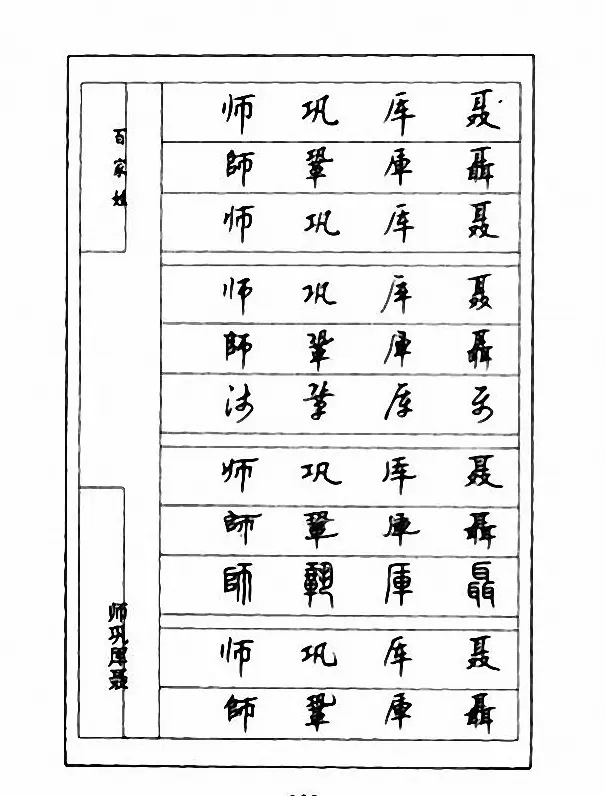 百家姓
师 巩 厍 聂
師 鞏 厙 聶
师 巩 厍 聂
师 巩 厍 聂
師 鞏 厙 聶
师 巩 厍 聂
師 鞏 厙 聶
師 鞏 厙 聶
师 巩 厍 聂
師 鞏 厙 聶
师巩厍聂